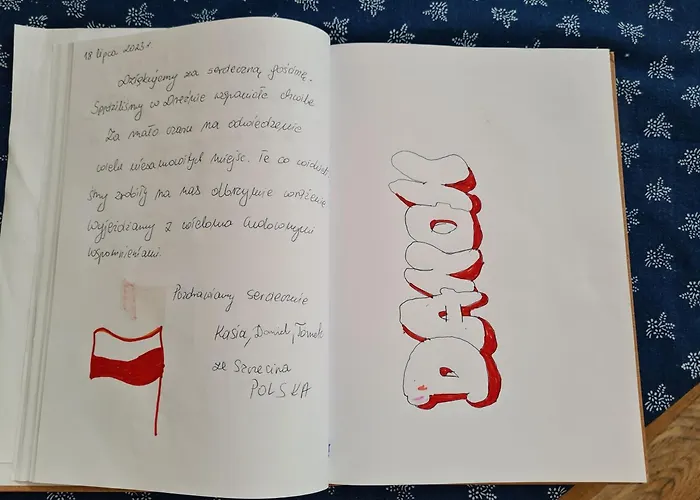 18 lipca 2023r
Dziękujemy za serdeczną gościnę.
Spędziliśmy w Dreźnie wspaniałe chwile
Za mało czasu na odwiedzenie
wielu niesamowitych miejsc. Te co widzieli
śmy zrobiły na nas olbrzymie wrażenie
Wyjeżdżamy z wieloma cudownymi
wspomnieniami.
Pozdrawiamy serdecznie
Kasia, Daniel, Tomek
ze Szczecina
POLSKA